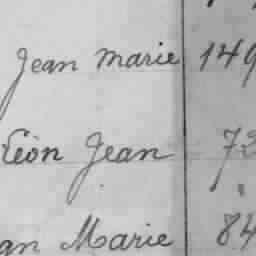 Jean Marie 149
Léon Jean 72
an Marie 84